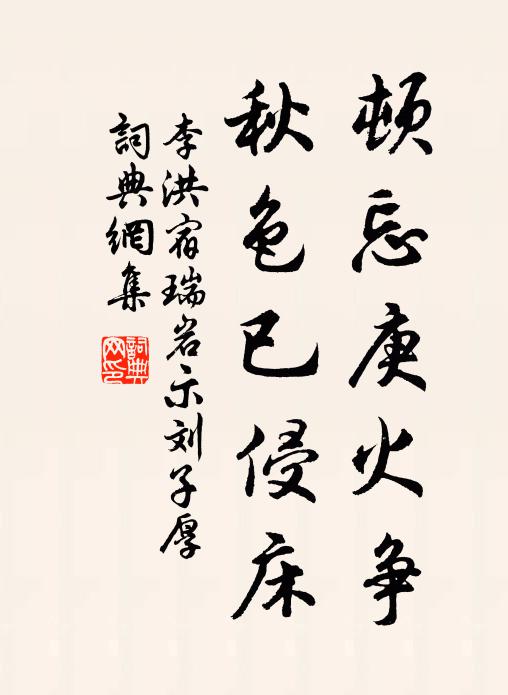 顿忘庚火争
秋色已侵床
李洪宿瑞岩示刘子厚
詞典網集
詞典网印